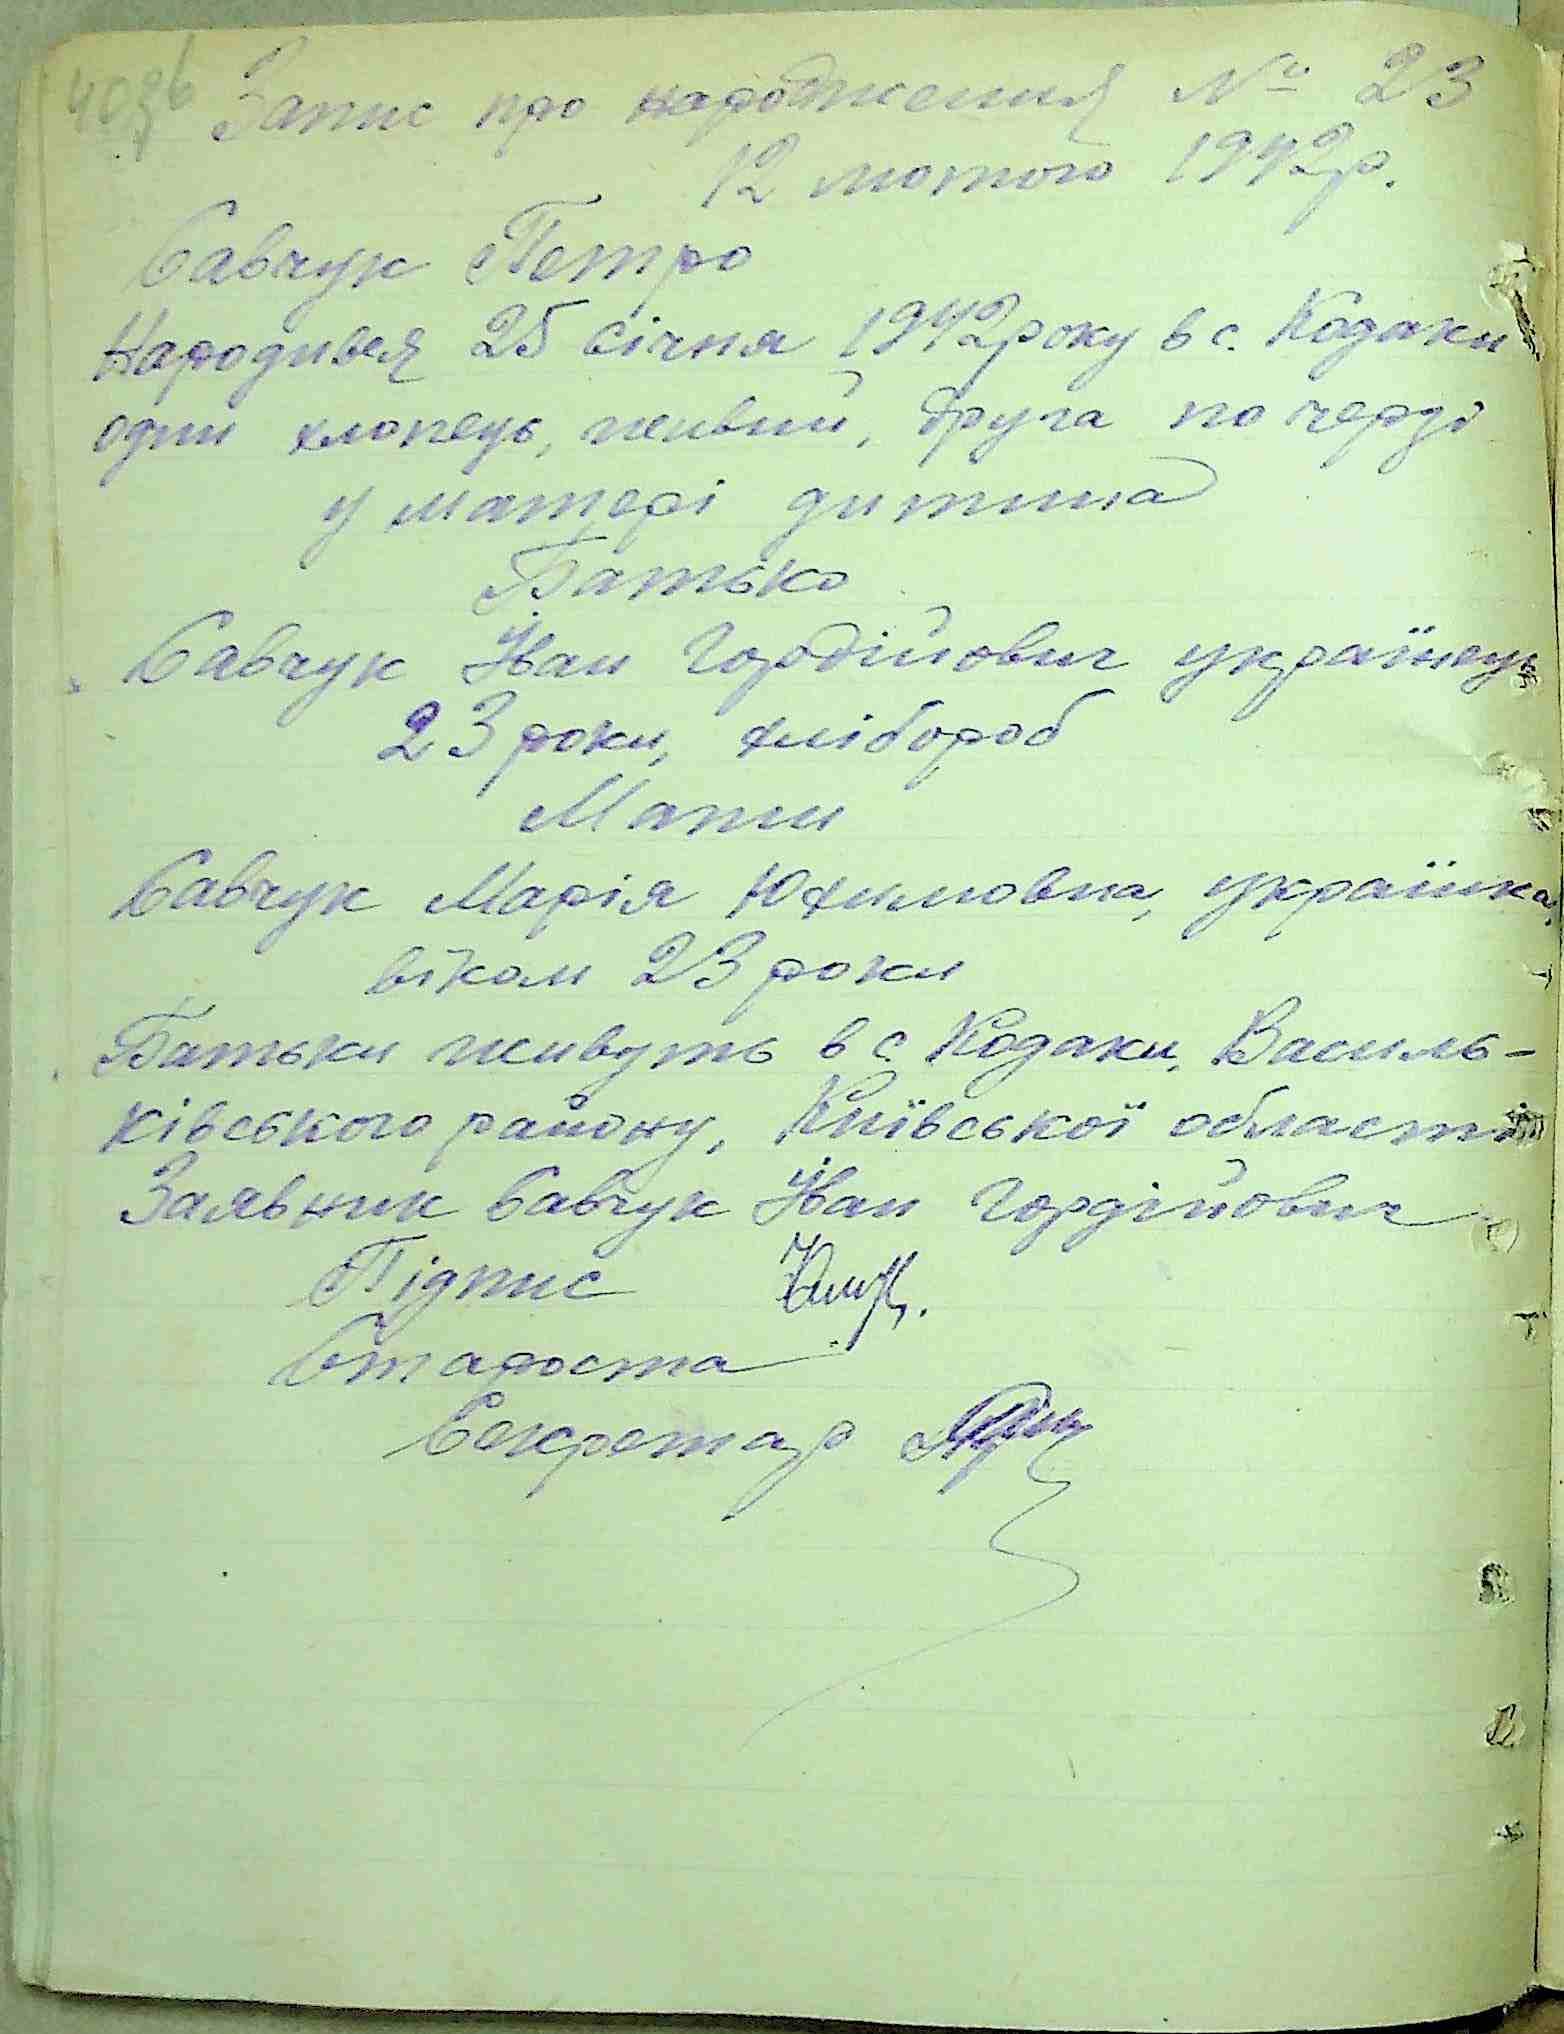 Запис про народження № 23
12 лютого 1942р.
Савчук Петро
Народився 25 січня 1942 року в с. Кодаки
один хлопець, живий, друга по черзі
у матері дитина
Батько
Савчук Іван Гордійович українець
23 роки, хлібороб
Мати
Савчук Марія Юхимовна, українка,
віком 23 роки
Батьки живуть в с. Кодаки, Василь-
ківського району, Київської області
Заявник Савчук Іван Гордійович
Підпис
Староста
Секретар